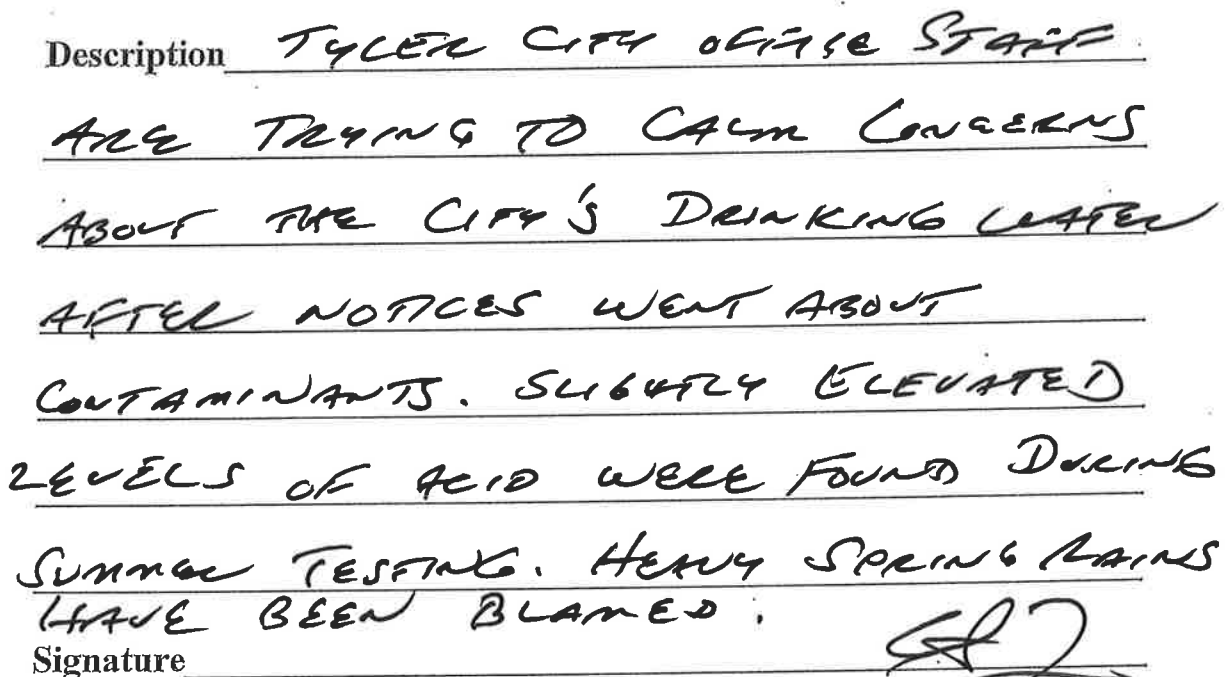 Description TYLER CITY OFFICE STAFF
ARE TRYING TO CALM CONCERNS
ABOUT THE CITY'S DRINKING WATER
AFTER NOTICES WENT ABOUT
CONTAMINANTS. SLIGHTLY ELEVATED
LEVELS OF ACID WERE FOUND DURING
SUMMER TESTING. HEAVY SPRING RAINS
HAVE BEEN BLAMED.
Signature